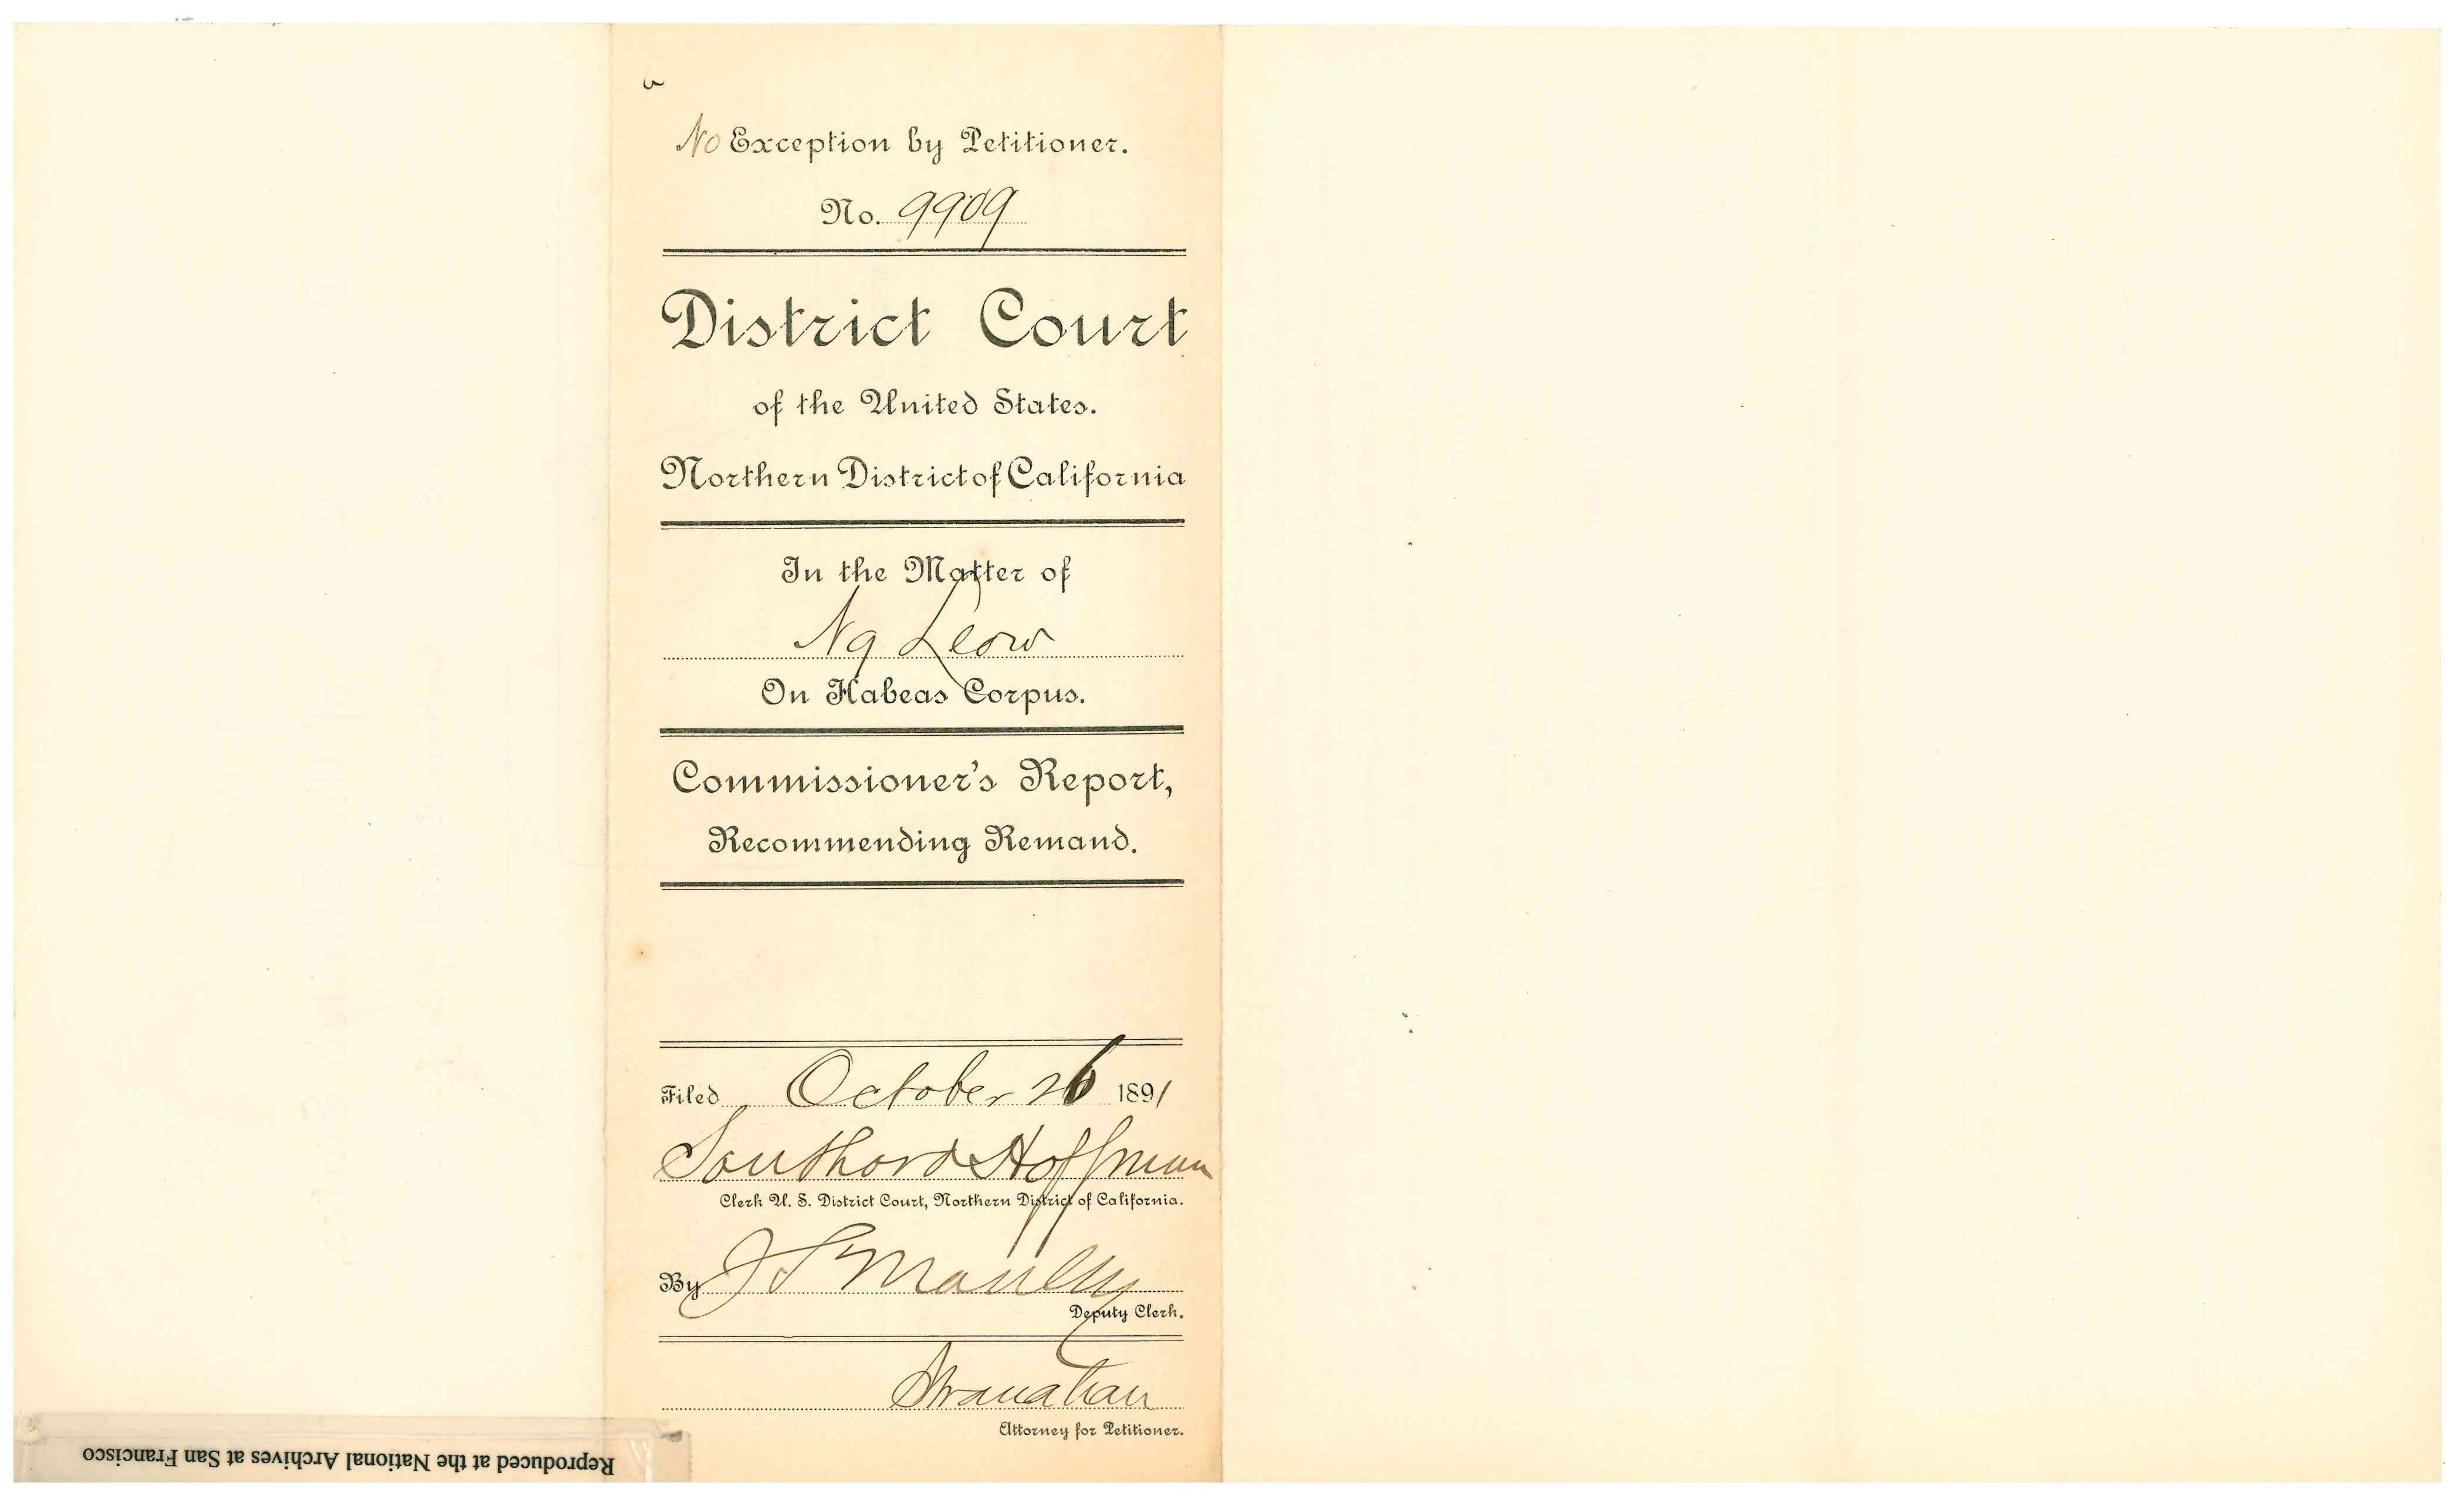 No Exception by Petitioner.
No. 9909
District Court
of the United States.
Northern District of California
In the Matter of
Ng Leow
On Habeas Corpus.
Commissioner's Report,
Recommending Remand.
Filed October 26 1891
Southard Hoffman
Clerk U. S. District Court, Northern District of California.
By
Deputy Clerk.
Stranahan
Attorney for Petitioner.
Reproduced at the National Archives at San Francisco